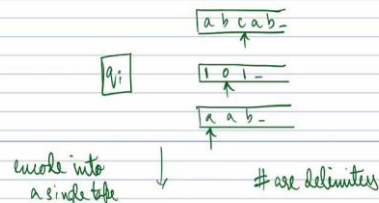 a b c a b -
qi
1 0 1 -
a a b -
encode into
a single tape
# are delimiters